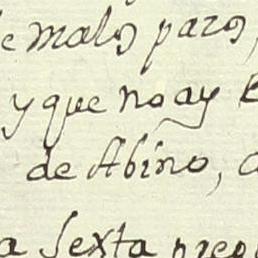 e malos pazos,
y que no ay
de Abino,
a Sexta preg